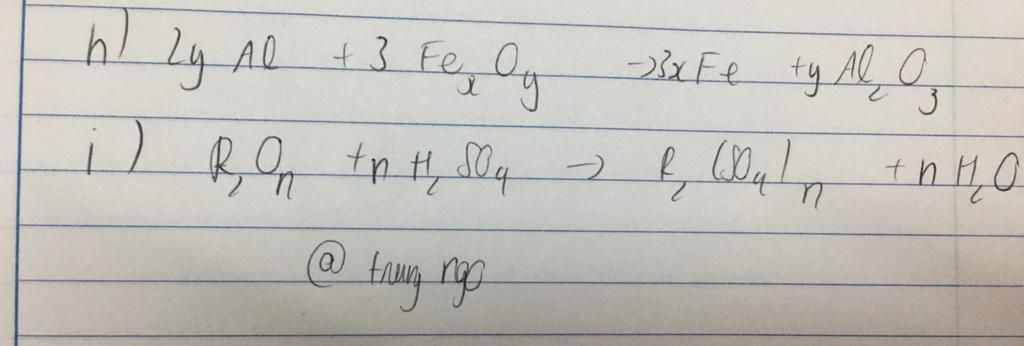 h) 2y Al + 3 FexOy → 3x Fe + y Al2O3
i) R2On + n H2SO4 → R2(SO4)n + n H2O
@ trung ngo